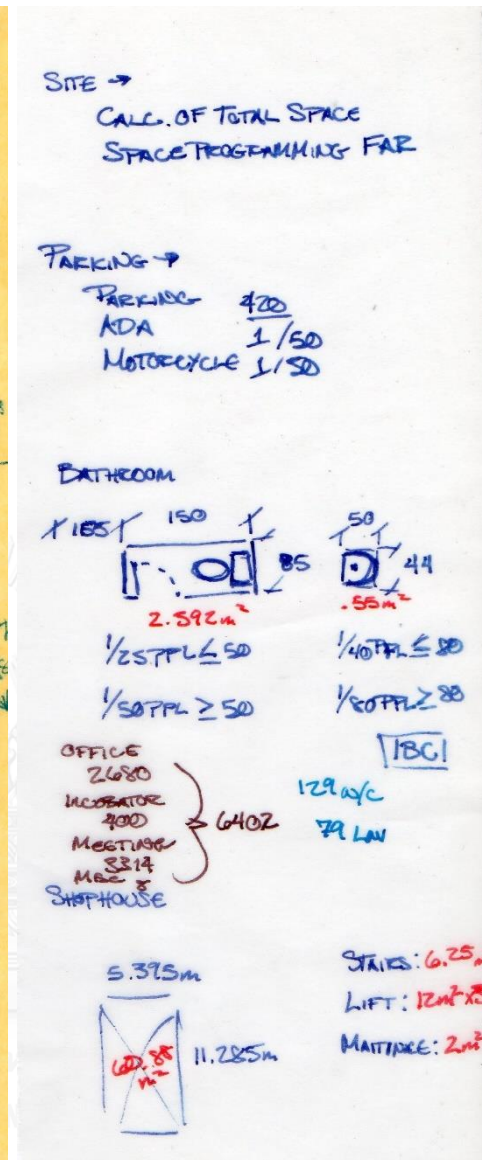 SITE →
CALC. OF TOTAL SPACE
SPACE PROGRAMMING FAR
PARKING →
PARKING 420
ADA 1/50
MOTORCYCLE 1/50
BATHROOM
185 150 50
85 44
2.592m² .55m²
1/25 PPL ≤ 50 1/40 PPL ≤ 80
1/50 PPL ≥ 50 1/80 PPL ≥ 80
IBC
OFFICE
2680
INCUBATOR
400
MEETING
3314
MEC 8
6402
129 w/c
79 LAV
SHOPHOUSE
5.395m
60.88 m²
11.285m
STAIRS: 6.25
LIFT: 12m² x3
2m²